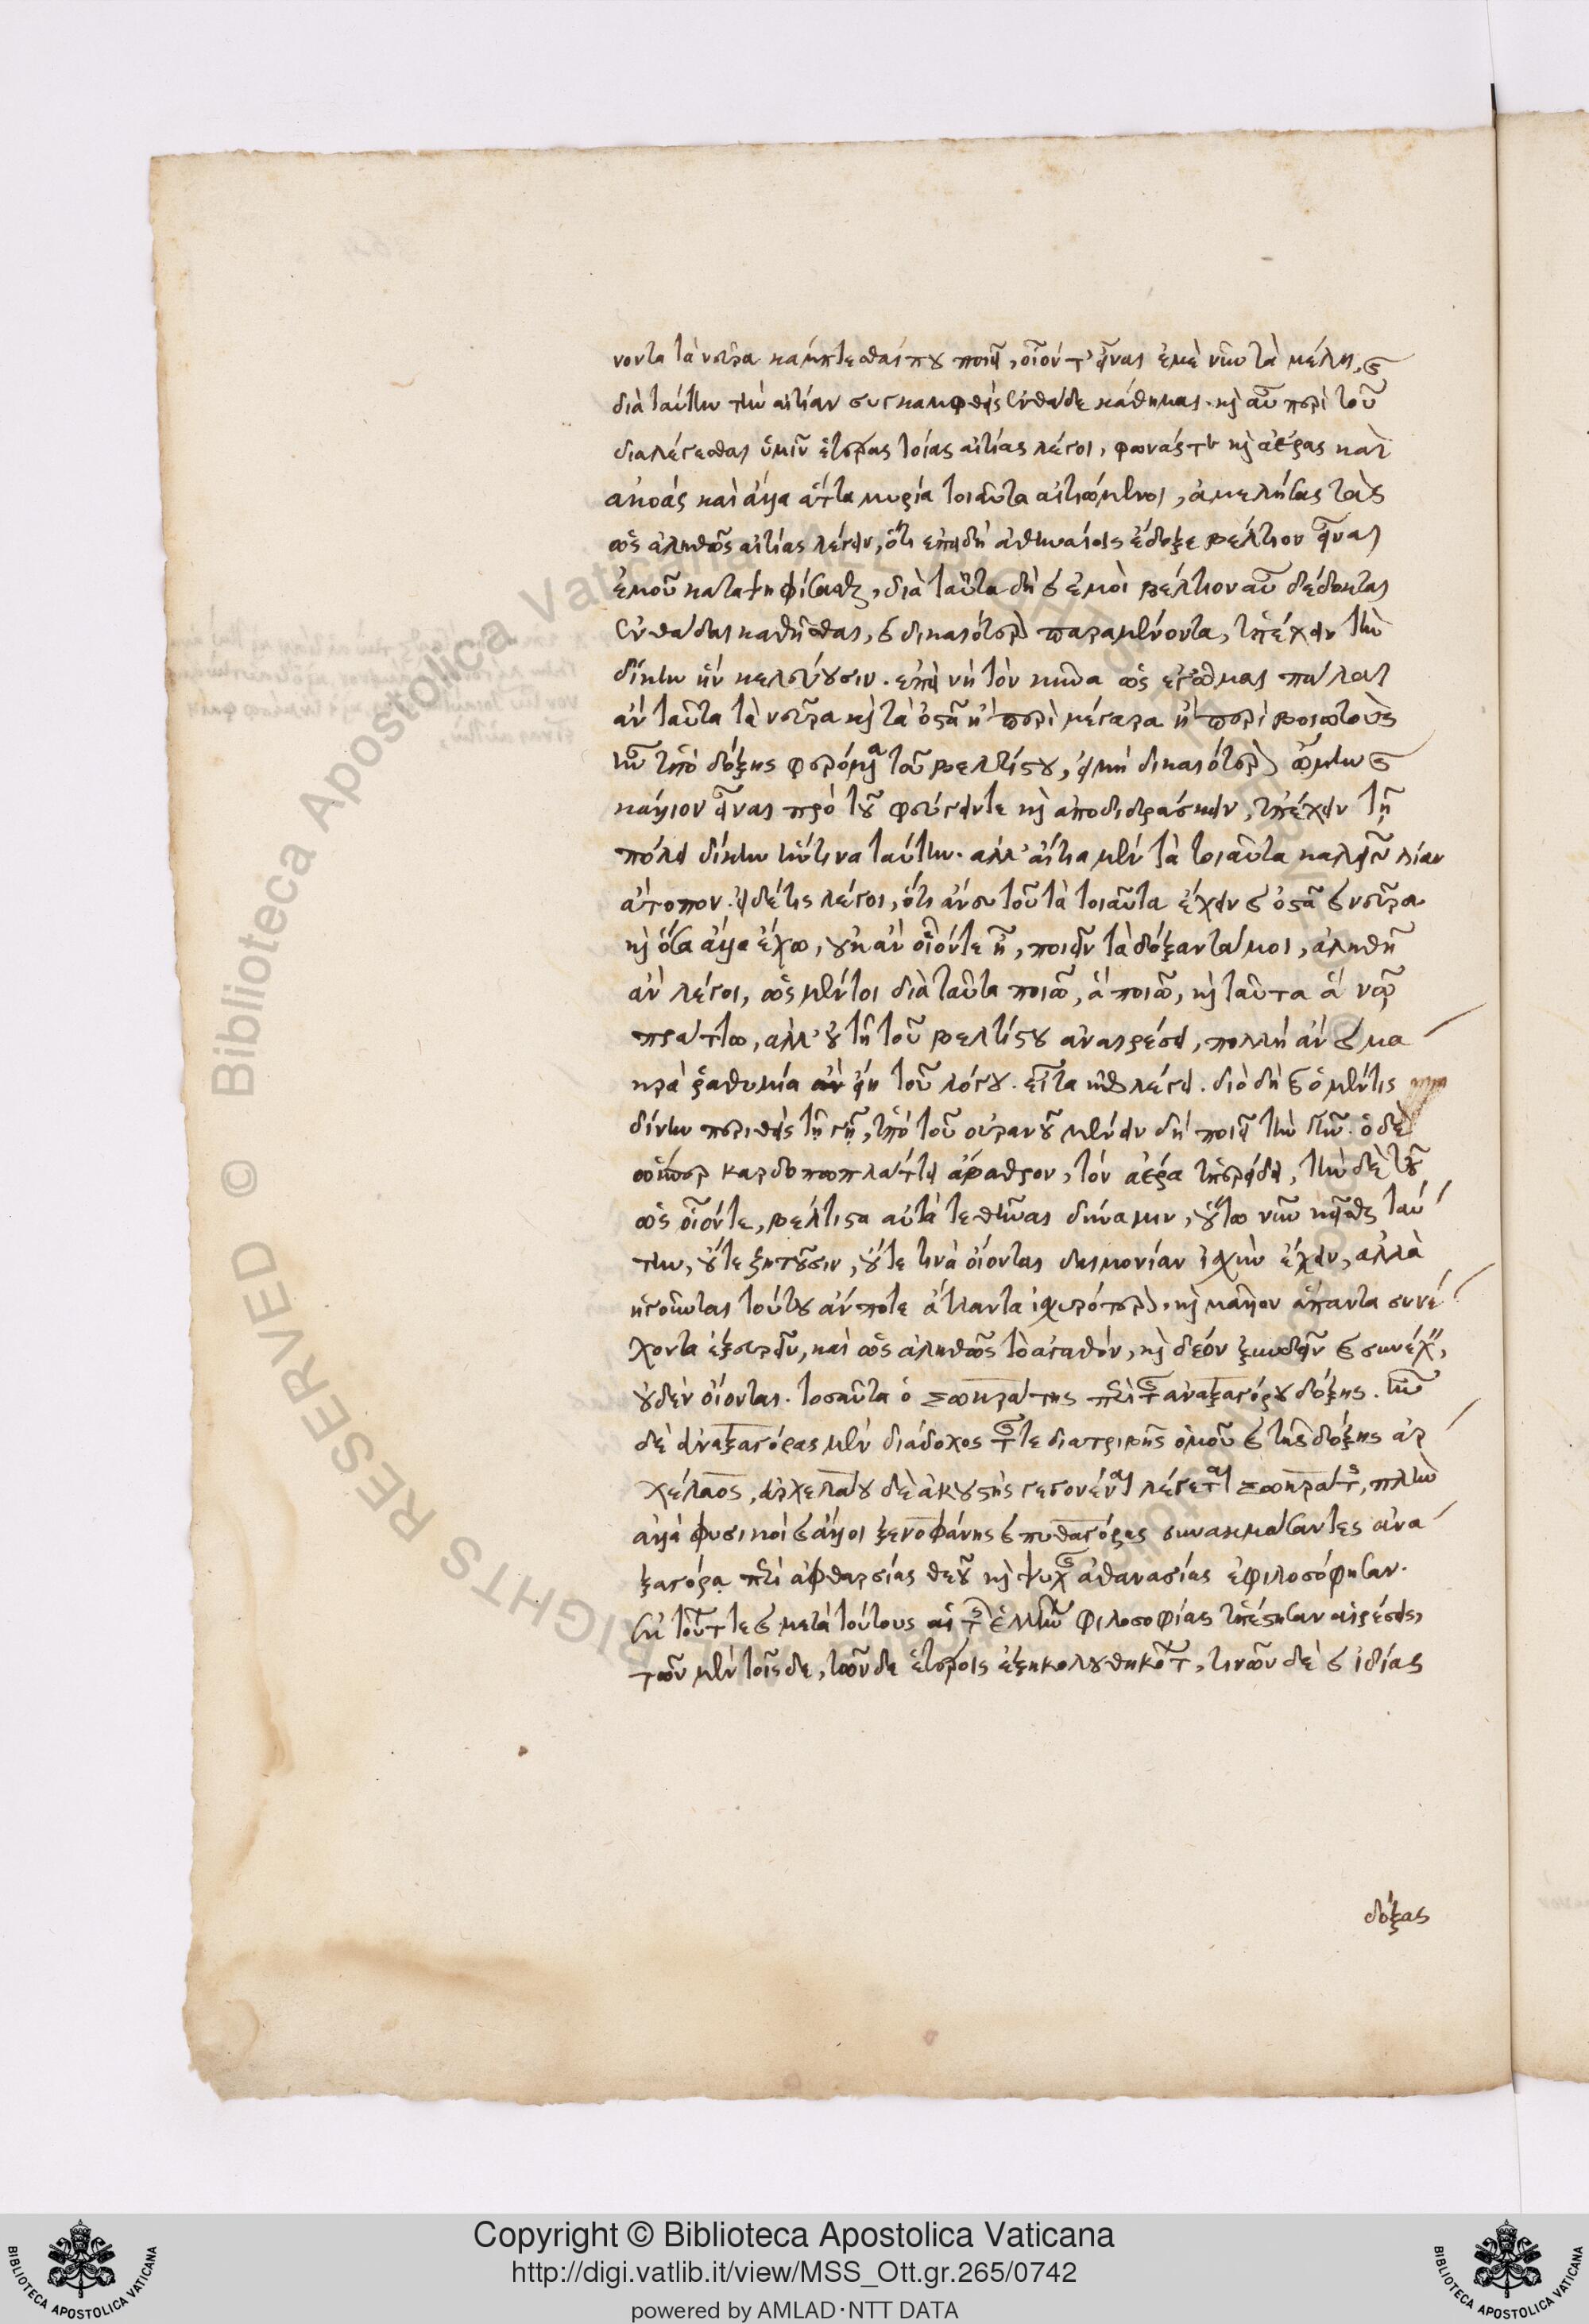 νοντα τὰ νεῦρα κάμπτεσθαί που ποιεῖ, οἷόν τ' εἶναι ἐμὲ νῦν τὰ μέλη, καὶ
διὰ ταύτην τὴν αἰτίαν συγκαμφθεὶς ἐνθάδε κάθημαι. καὶ αὖ περὶ τοῦ
διαλέγεσθαι ὑμῖν ἑτέρας τοίας αἰτίας λέγοι, φωνάς τε καὶ ἀέρας καὶ
ἀκοάς καὶ ἄλλα ἄττα μυρία τοιαῦτα αἰτιώμενοι, ἀμελήσας τὰς
ὡς ἀληθῶς αἰτίας λέγειν, ὅτι ἐπειδὴ ἀθηναίοις ἔδοξε βέλτιον εἶναι
ἐμοῦ καταψηφίσασθαι, διὰ ταῦτα δὴ καὶ ἐμοὶ βέλτιον αὖ δέδοκται
ἐνθάδαι καθῆσθαι, καὶ δικαιότερον παραμένοντα, ὑπέχειν τὴν
δίκην ἣν κελεύουσιν. ἐπεὶ νὴ τὸν κύνα ὡς ἐγᾦμαι πάλαι
ἂν ταῦτα τὰ νεῦρα καὶ τὰ ὀστᾶ ἢ περὶ μέγαρα ἢ περὶ βοιωτοὺς
ἦν ὑπὸ δόξης φερόμενα τοῦ βελτίστου, εἰ μὴ δικαιότερον ᾤμην καὶ
κάλλιον εἶναι πρὸ τοῦ φεύγειν τε καὶ ἀποδιδράσκειν, ὑπέχειν τῇ
πόλει δίκην ἥντινα ταύτην. ἀλλ' αἴτια μὲν τὰ τοιαῦτα καλεῖν λίαν
ἄτοπον. εἰ δέ τις λέγοι, ὅτι ἄνευ τοῦ τὰ τοιαῦτα ἔχειν καὶ ὀστᾶ καὶ νεῦρα
καὶ ὅσα ἄλλα ἔχω, οὐκ ἂν οἷόντε ἦ, ποιεῖν τὰ δόξαντά μοι, ἀληθῆ
ἂν λέγοι, ὡς μέντοι διὰ ταῦτα ποιῶ, ἃ ποιῶ, καὶ ταῦτα ἃ νῷ
πράττω, ἀλλ' οὐ τῇ τοῦ βελτίστου αἱρέσει, πολλὴ ἂν καὶ μα
κρὰ ῥαθυμία εἴη τοῦ λόγου. εἶτα λέγει. διὸ δὴ καὶ ὁ μέν τις
δίνην περιθεὶς τῇ γῇ, ὑπὸ τοῦ οὐρανοῦ μένειν δὴ ποιεῖ τὴν γῆν. ὁ δὲ
ὥσπερ καρδόπῳ πλατείᾳ βάθρον, τὸν ἀέρα ὑπερείδει, τὴν δὲ τοῦ
ὡς οἷόντε, βέλτιστα αὐτὰ τεθῆναι δύναμιν, οὕτω νῦν κεῖσθαι ταύ
την, οὔτε ζητοῦσιν, οὔτε τινὰ οἴονται δαιμονίαν ἰσχὺν ἔχειν, ἀλλὰ
ἡγοῦνται τούτου ἄν ποτε ἄτλαντα ἰσχυρότερον, καὶ μᾶλλον ἅπαντα συνέ
χοντα ἐξευρεῖν, καὶ ὡς ἀληθῶς τὸ ἀγαθόν, καὶ δέον ξυνδεῖν καὶ συνέχειν,
οὐδὲν οἴονται. τοσαῦτα ὁ σωκράτης περὶ τῆς ἀναξαγόρου δόξης. ἦν
δὲ ἀναξαγόρας μὲν διάδοχος τῆς τε διατριβῆς ὁμοῦ καὶ τῆς δόξης ἀρ
χέλαος, ἀρχελάου δὲ ἀκουστὴς γεγονέναι λέγεται σωκράτης, πλὴν
ἀλλὰ φυσικοὶ καὶ ἄλλοι ξενοφάνης καὶ πυθαγόρας συνακμάσαντες ἀνα
ξαγόρᾳ περὶ ἀφθαρσίας θεοῦ καὶ ψυχῆς ἀθανασίας ἐφιλοσόφησαν.
ἐκ τούτων τε καὶ μετὰ τούτους αἱ τῆς ἑλλήνων φιλοσοφίας ὑπέστησαν αἱρέσεις,
τῶν μὲν τοῖσδε, τῶν δε ἑτέροις ἐξηκολουθηκότων, τινῶν δὲ καὶ ἰδίας
δόξας
Copyright © Biblioteca Apostolica Vaticana
http://digi.vatlib.it/view/MSS_Ott.gr.265/0742
powered by AMLAD·NTT DATA